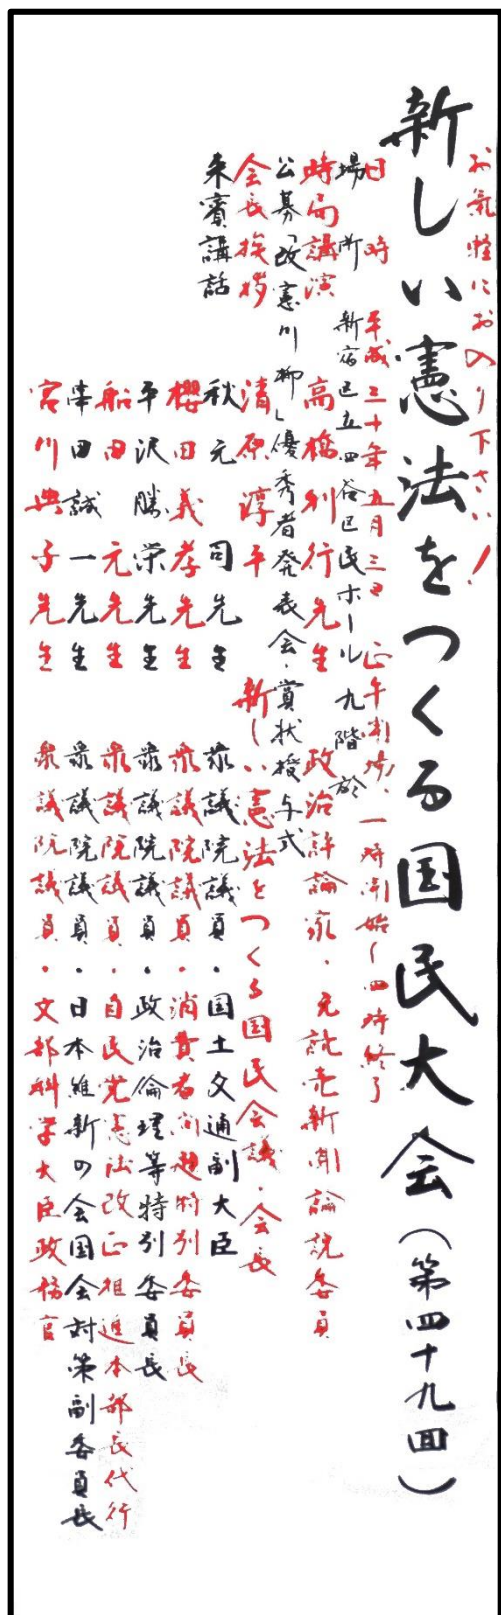 お気軽にお入り下さい！
新しい憲法をつくる国民大会（第四十九回）
日時 平成三十年五月三日 正午開場、一時開始～四時終了
場所 新宿区立四谷区民ホール九階於
時局講演 高橋利行先生 政治評論家・元読売新聞論説委員
公募「改憲川柳」優秀者発表会・賞状授与式
会長挨拶 清原淳平 新しい憲法をつくる国民会議・会長
来賓講話 秋元司先生 衆議院議員・国土交通副大臣
櫻田義孝先生 衆議院議員・消費者問題特別委員長
平沢勝栄先生 衆議院議員・政治倫理等特別委員長
船田元先生 衆議院議員・自民党憲法改正推進本部長代行
串田誠一先生 衆議院議員・日本維新の会国会対策副委員長
宮川典子先生 衆議院議員・文部科学大臣政務官